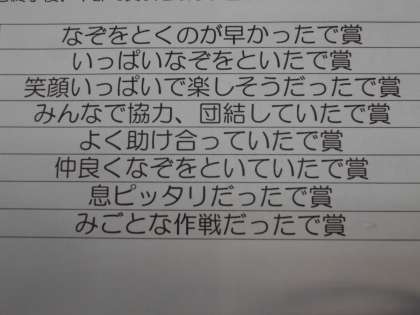 なぞをとくのが早かったで賞
いっぱいなぞをといたで賞
笑顔いっぱいで楽しそうだったで賞
みんなで協力、団結していたで賞
よく助け合っていたで賞
仲良くなぞをといていたで賞
息ピッタリだったで賞
みごとな作戦だったで賞